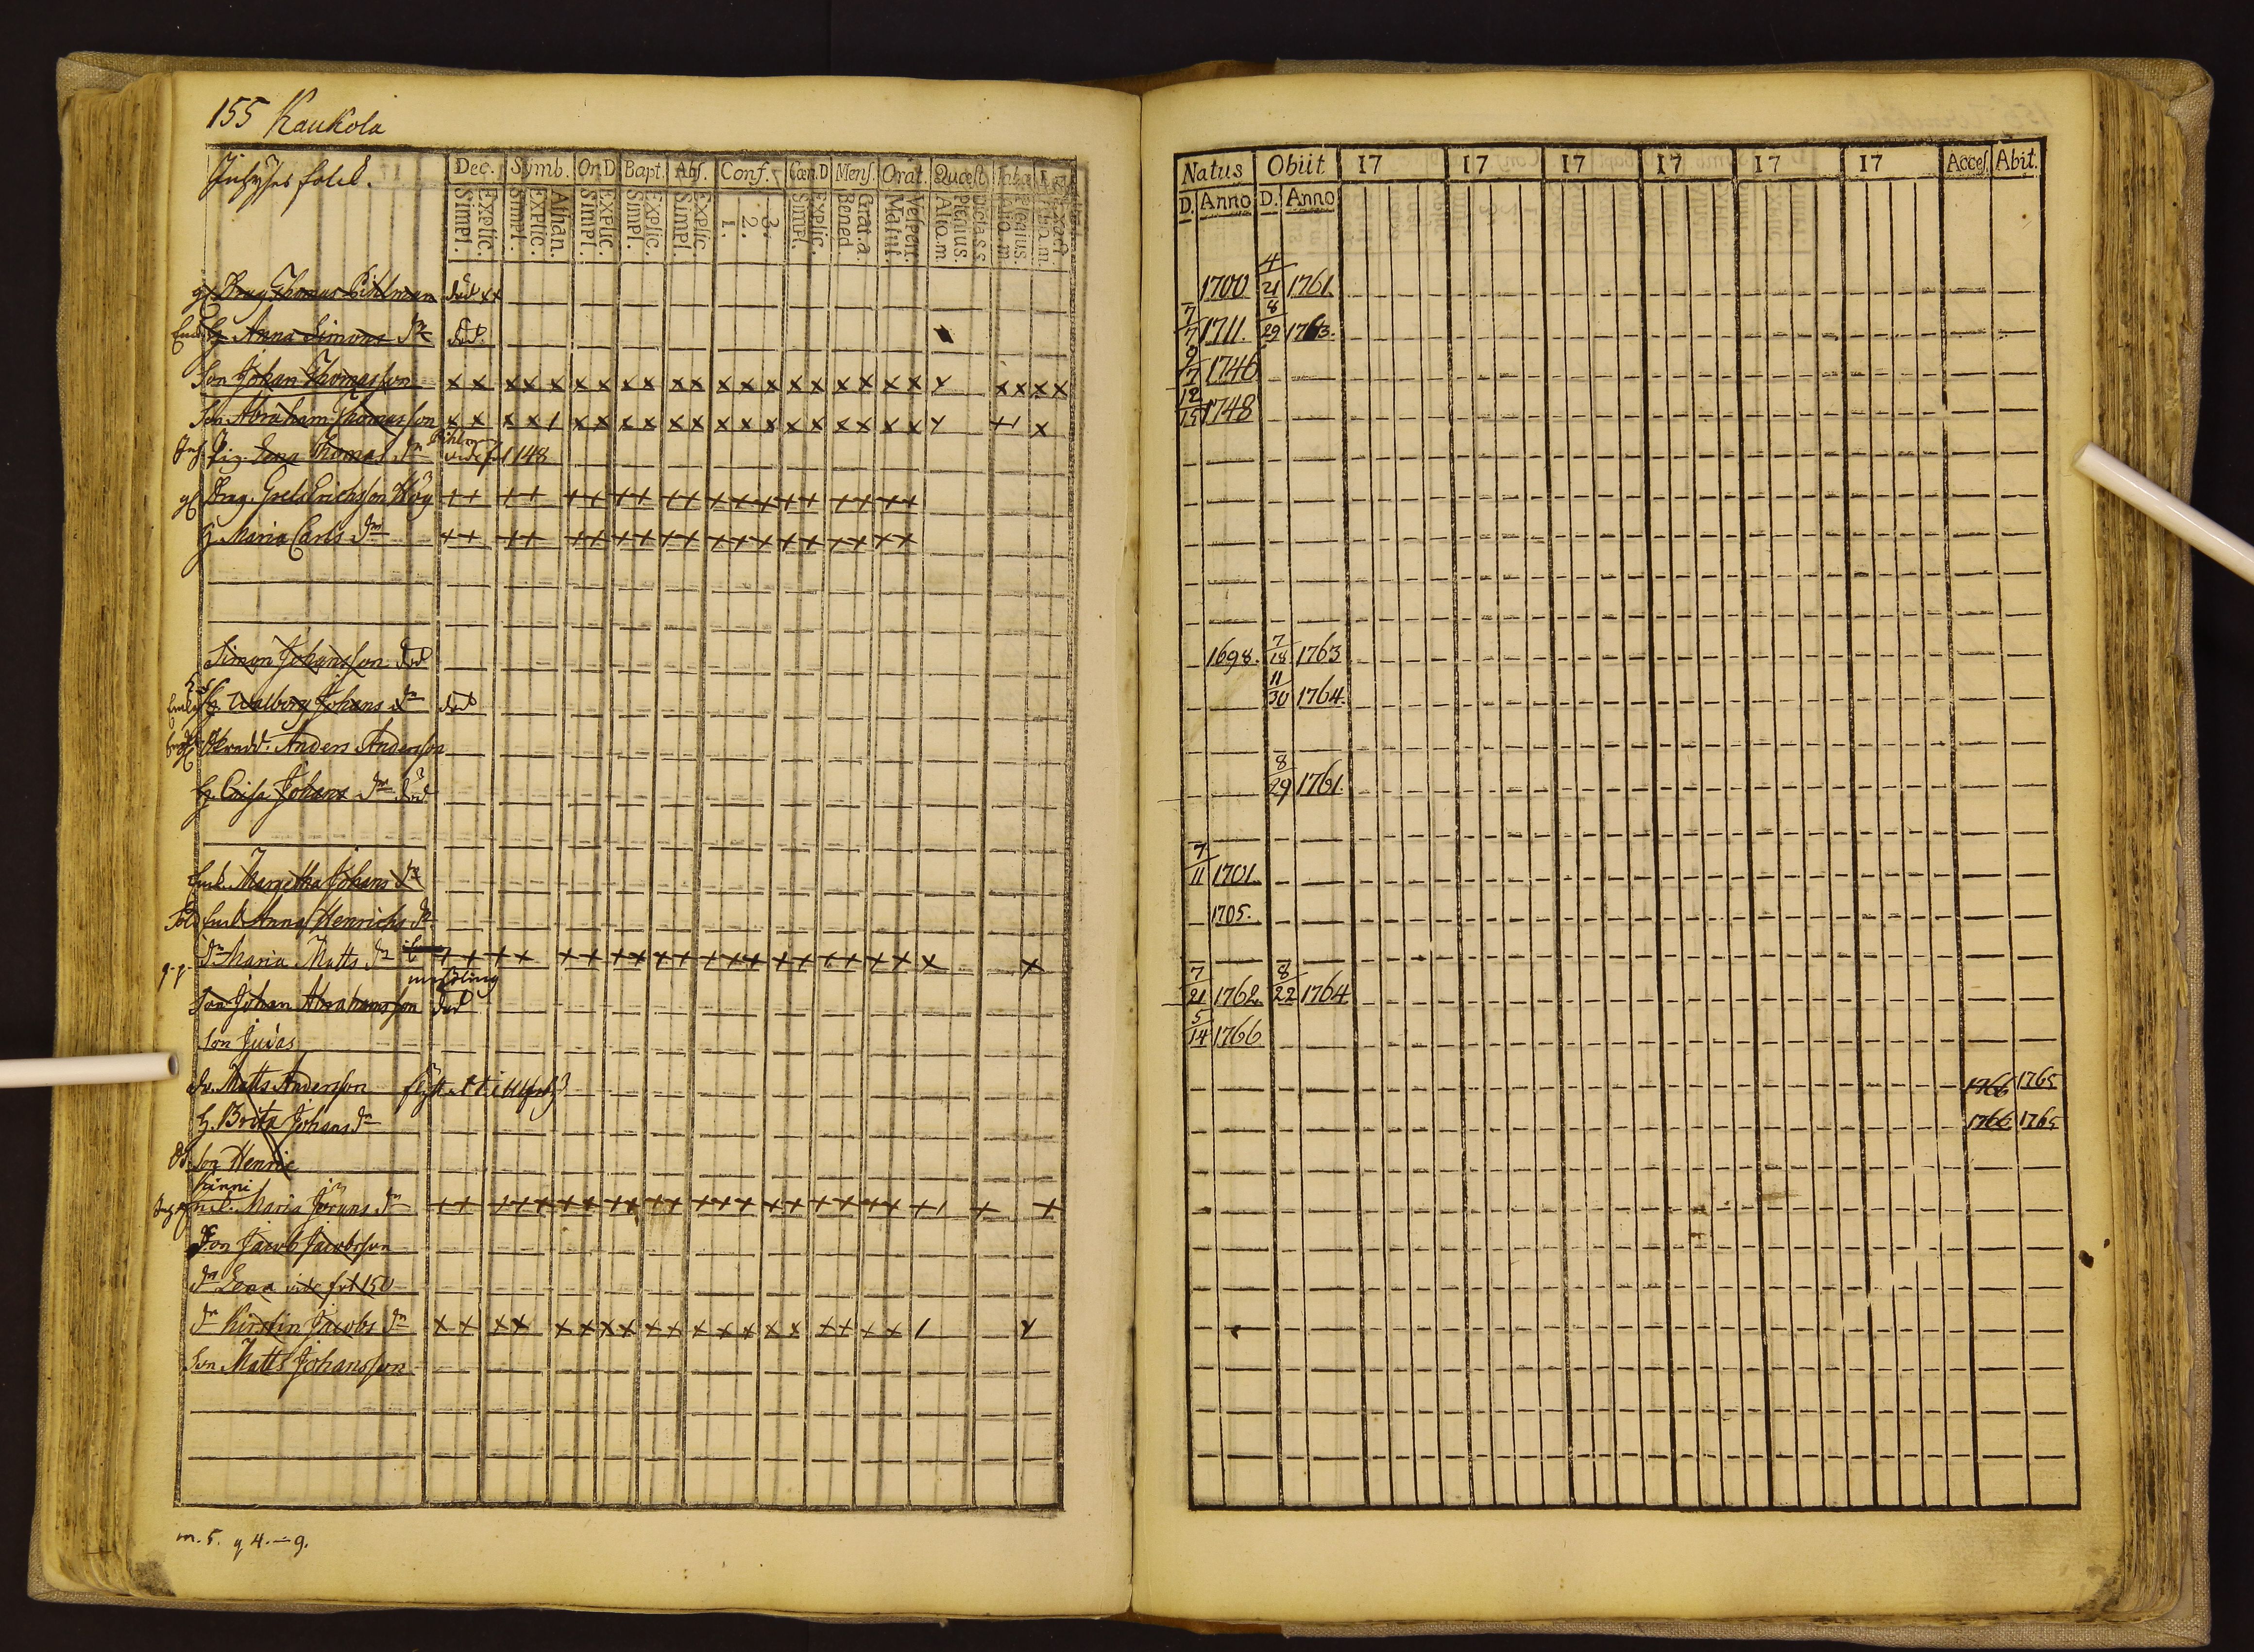 155 Kaukola
Inhyses folck.
Dec. Symb. Or.D Bapt. Abs. Conf. Cœn.D Mens. Orat. Quæst.
Simpl. Explic. Simpl. Explic. Athan. Simpl. Explic. Simpl. Explic. Simpl. Explic. 1. 2. 3. Simpl. Explic. Bened. Grat.a. Matut. Vespert. Aliq.m. Plenius.
Drag Thomas Pihlman död xx
Enk. h. Anna Simons dr död.
Son Johan Thomasson x x x x x x x x x x x x x x x x x x x x x y x x x x
Son Abraham Thomasson x x x x / x x x x x x x x x x x x x x x y x
Inh. Pig. Lena Thomas dr vide fol 148
Drag. Erichsson Hög ++ ++ ++ ++ ++ +++ ++ ++ ++
h. Maria Carls dr ++ ++ ++ ++ ++ +++ ++ ++ ++
Simon Johansson död
h. Walborg Johans dr död
Skredd. Anders Andersson
h. Caisa Johans dr död
Enk. Margetha Johans dr
Enk Anna Henrichs dr
dr Maria Matts dr ++ ++ ++ ++ ++ +++ ++ ++ ++ x x
Son Johan Abrahamsson död
Son Judas
Matts Andersson
h. Brita Johans dr
Son Henric
Maria Jörans dr ++ +++ ++ ++ ++ +++ ++ ++ ++ +1 + +
Son Jacob Jacobsson
dr Lena vide fol 150
dr Kirstin Jacobs dr x x x x x x x x x x x x x x x + + x x / y
Son Matts Johansson
m. 5. q 4. = 9.
Natus Obiit 17 17 17 17 17 17 Acces. Abit.
D. Anno D. Anno
1700 4/21 1761
7/7 1711. 8/29 1763.
9/7 1746
12/15 1748
1698. 7/18 1763
11/30 1764.
8/29 1761.
7/11 1701
1705.
7/21 1762 8/22 1764
5/14 1766
1766 1765
1766 1765